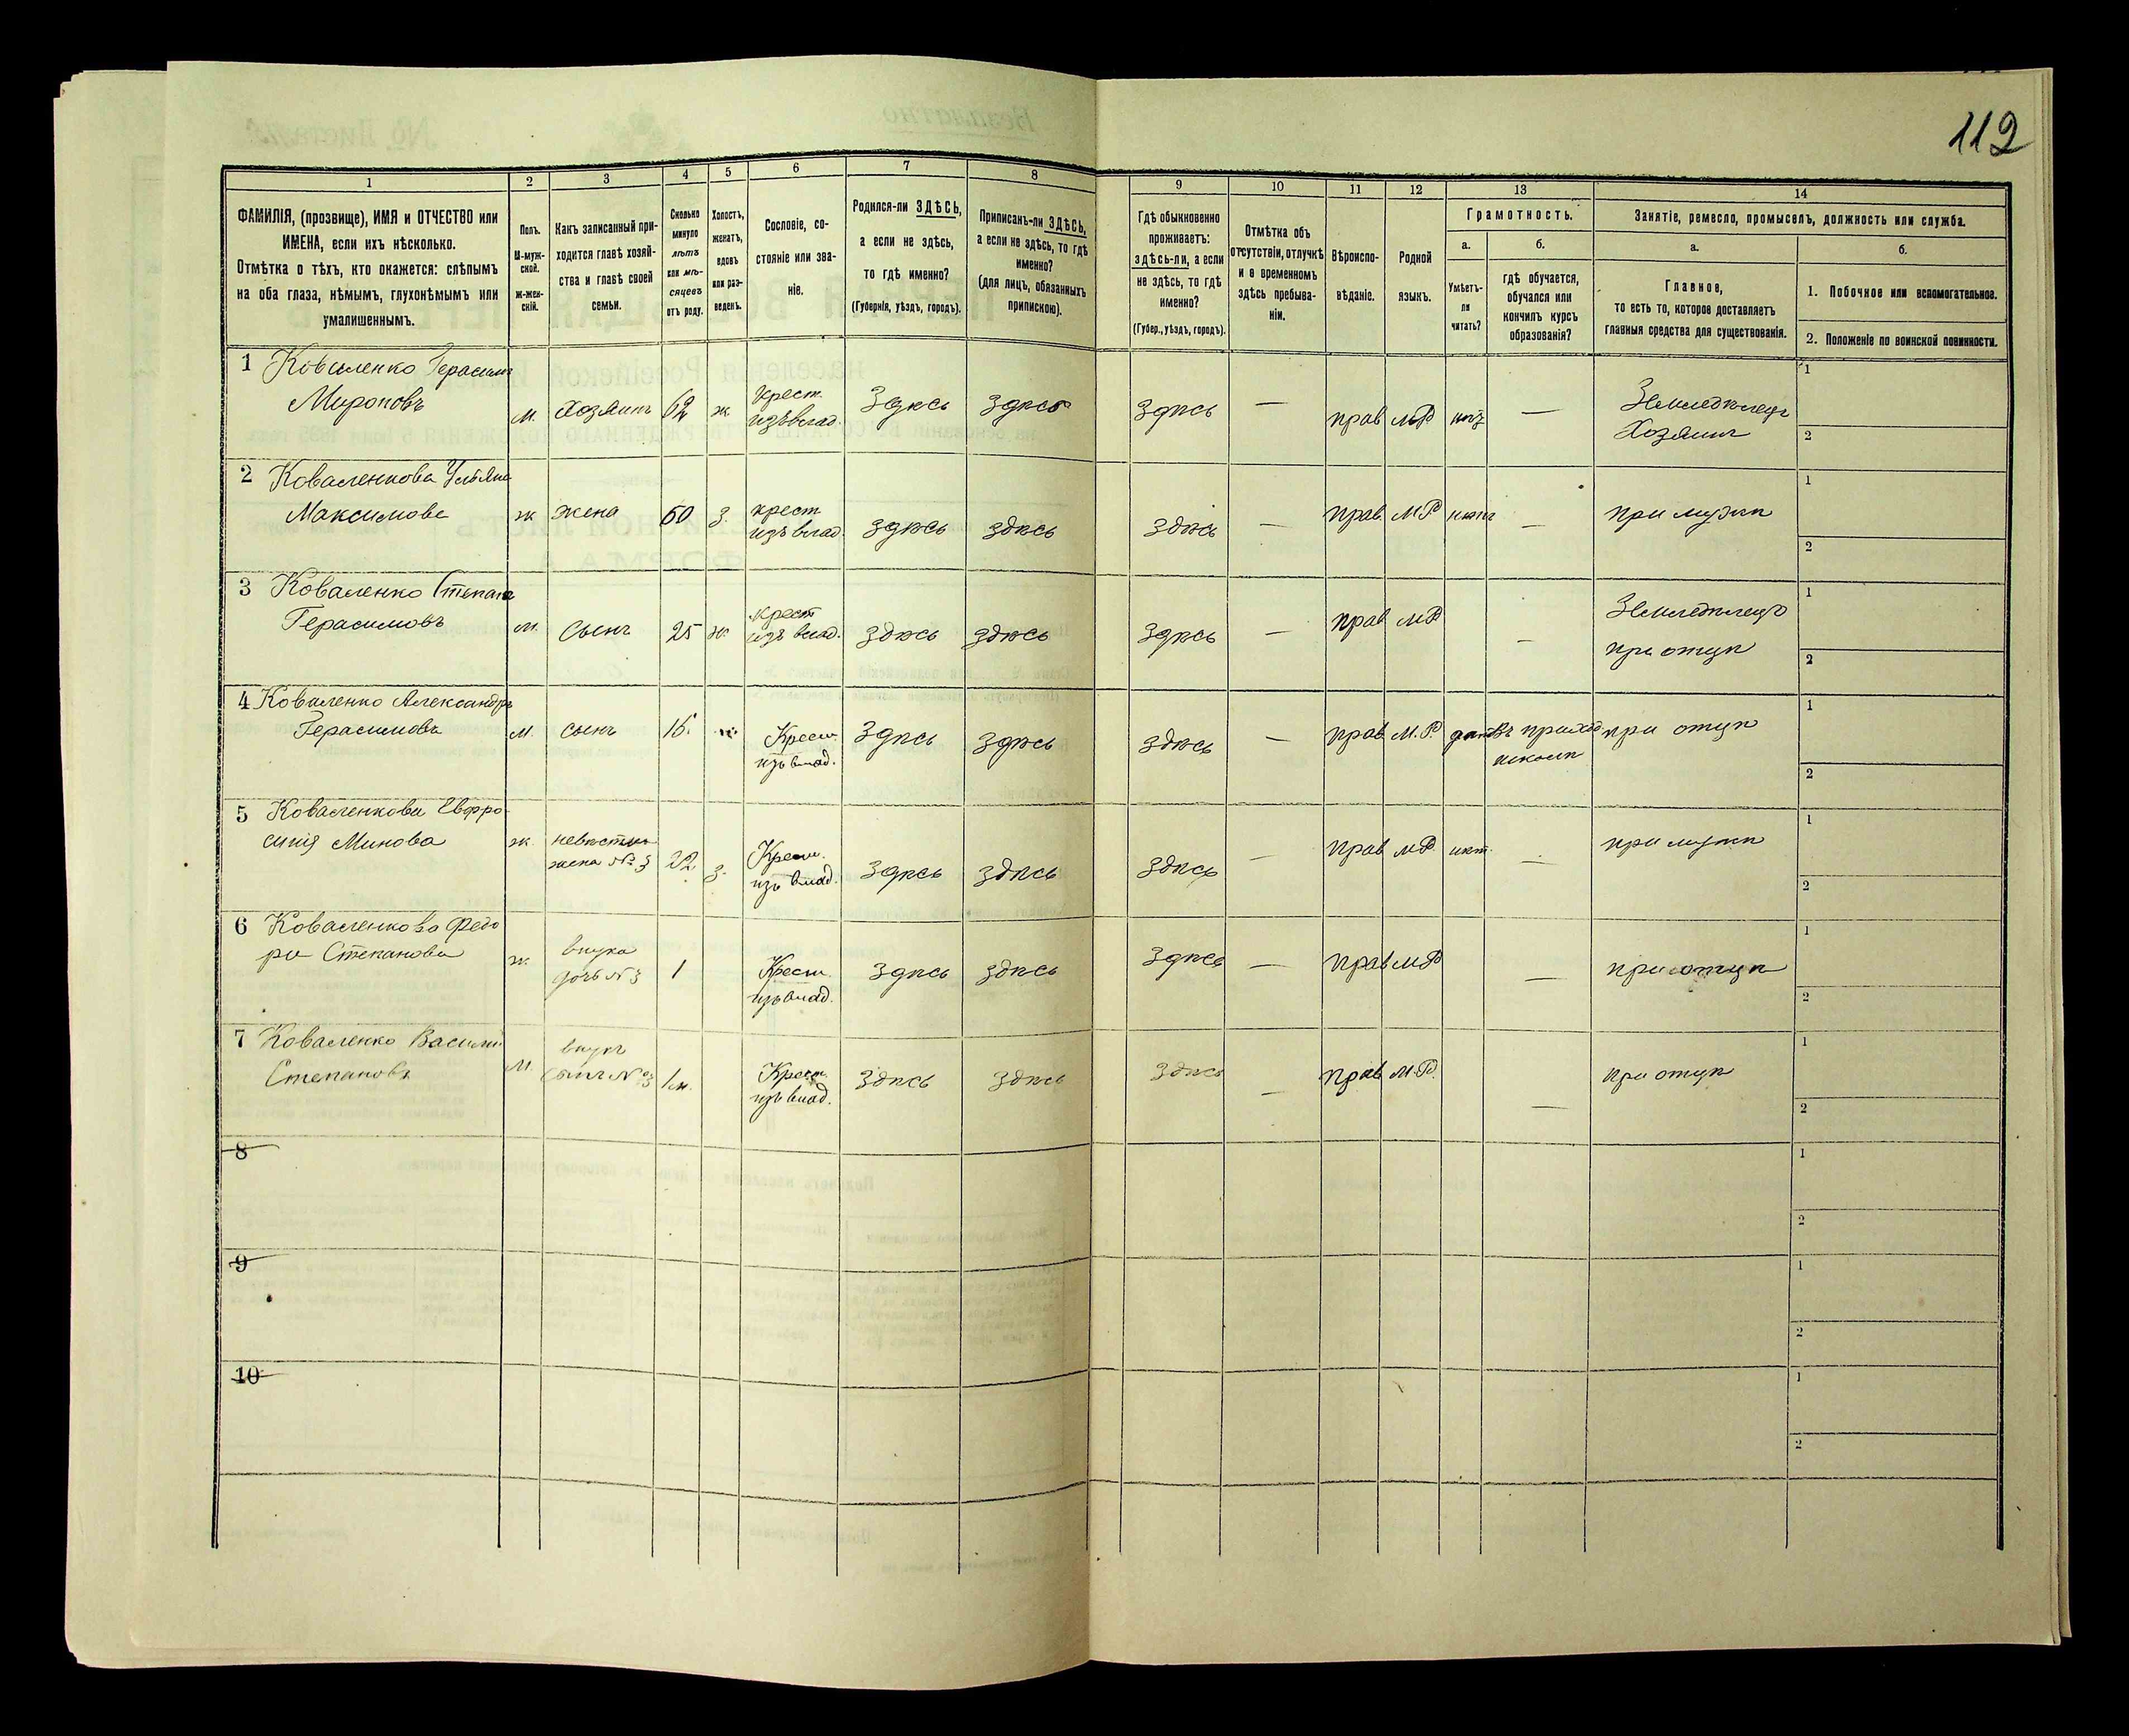 112
1 2 3 4 5 6 7 8 9 10 11 12 13 14
ФАМИЛІЯ, (прозвище), ИМЯ и ОТЧЕСТВО или
ИМЕНА, если ихъ нѣсколько.
Отмѣтка о тѣхъ, кто окажется: слѣпымъ
на оба глаза, нѣмымъ, глухонѣмымъ или
умалишеннымъ.
Полъ.
М-муж-
ской.
Ж-жен-
скій.
Какъ записанный при-
ходится главѣ хозяй-
ства и главѣ своей
семьи.
Сколько
минуло
лѣтъ
или мѣ-
сяцевъ
отъ роду.
Холостъ,
женатъ,
вдовъ
или раз-
веденъ.
Сословіе, со-
стояніе или зва-
ніе.
Родился-ли ЗДѢСЬ,
а если не здѣсь,
то гдѣ именно?
(Губернія, уѣздъ, городъ).
Приписанъ-ли ЗДѢСЬ,
а если не здѣсь, то гдѣ
именно?
(для лицъ, обязанныхъ
припискою).
Гдѣ обыкновенно
проживаетъ:
здѣсь-ли, а если
не здѣсь, то гдѣ
именно?
(Губер., уѣздъ, городъ).
Отмѣтка объ
отсутствіи, отлучкѣ
и о временномъ
здѣсь пребыва-
ніи.
Вѣроиспо-
вѣданіе.
Родной
языкъ.
Грамотность.
а.
Умѣетъ-
ли
читать?
б.
гдѣ обучается,
обучался или
кончилъ курсъ
образованія?
Занятіе, ремесло, промыселъ, должность или служба.
а.
Главное,
то есть то, которое доставляетъ
главныя средства для существованія.
б.
1. Побочное или вспомогательное.
2. Положеніе по воинской повинности.
1 Коваленко Герасимъ
Мироновъ
м. хозяинъ 62 ж крест.
изъ влад. здѣсь здѣсь здѣсь — прав МР нѣтъ — Земледѣлецъ
Хозяинъ
1
2
2 Коваленкова Ульяна
Максимова
ж жена 60 з. крест
изъ влад. здѣсь здѣсь здѣсь — прав. МР нѣтъ — при мужѣ
1
2
3 Коваленко Степанъ
Герасимовъ
м. сынъ 25 ж крест
изъ влад. здѣсь здѣсь здѣсь — прав МР — Земледѣлецъ
при отцѣ
1
2
4 Коваленко Александръ
Герасимовъ
м. сынъ Крест.
изъ влад. здѣсь здѣсь здѣсь — прав М.Р. да въ приход
школѣ при отцѣ
1
2
5 Коваленкова Евфро
синія Минова
ж. невѣстка
жена №3 22 з. Крест.
изъ влад. здѣсь здѣсь здѣсь — прав МР. нѣт. — при мужѣ
1
2
6 Коваленкова Федо
ра Степанова
ж. внука
дочь №3 1 Крест.
изъ влад. здѣсь здѣсь здѣсь — прав МР — при отцѣ
1
2
7 Коваленко Василій
Степановъ
м. внукъ
сынъ №3 1м. Крест.
изъ влад. здѣсь здѣсь здѣсь — прав М.Р. — при отцѣ
1
2
8
1
2
9
1
2
10
1
2